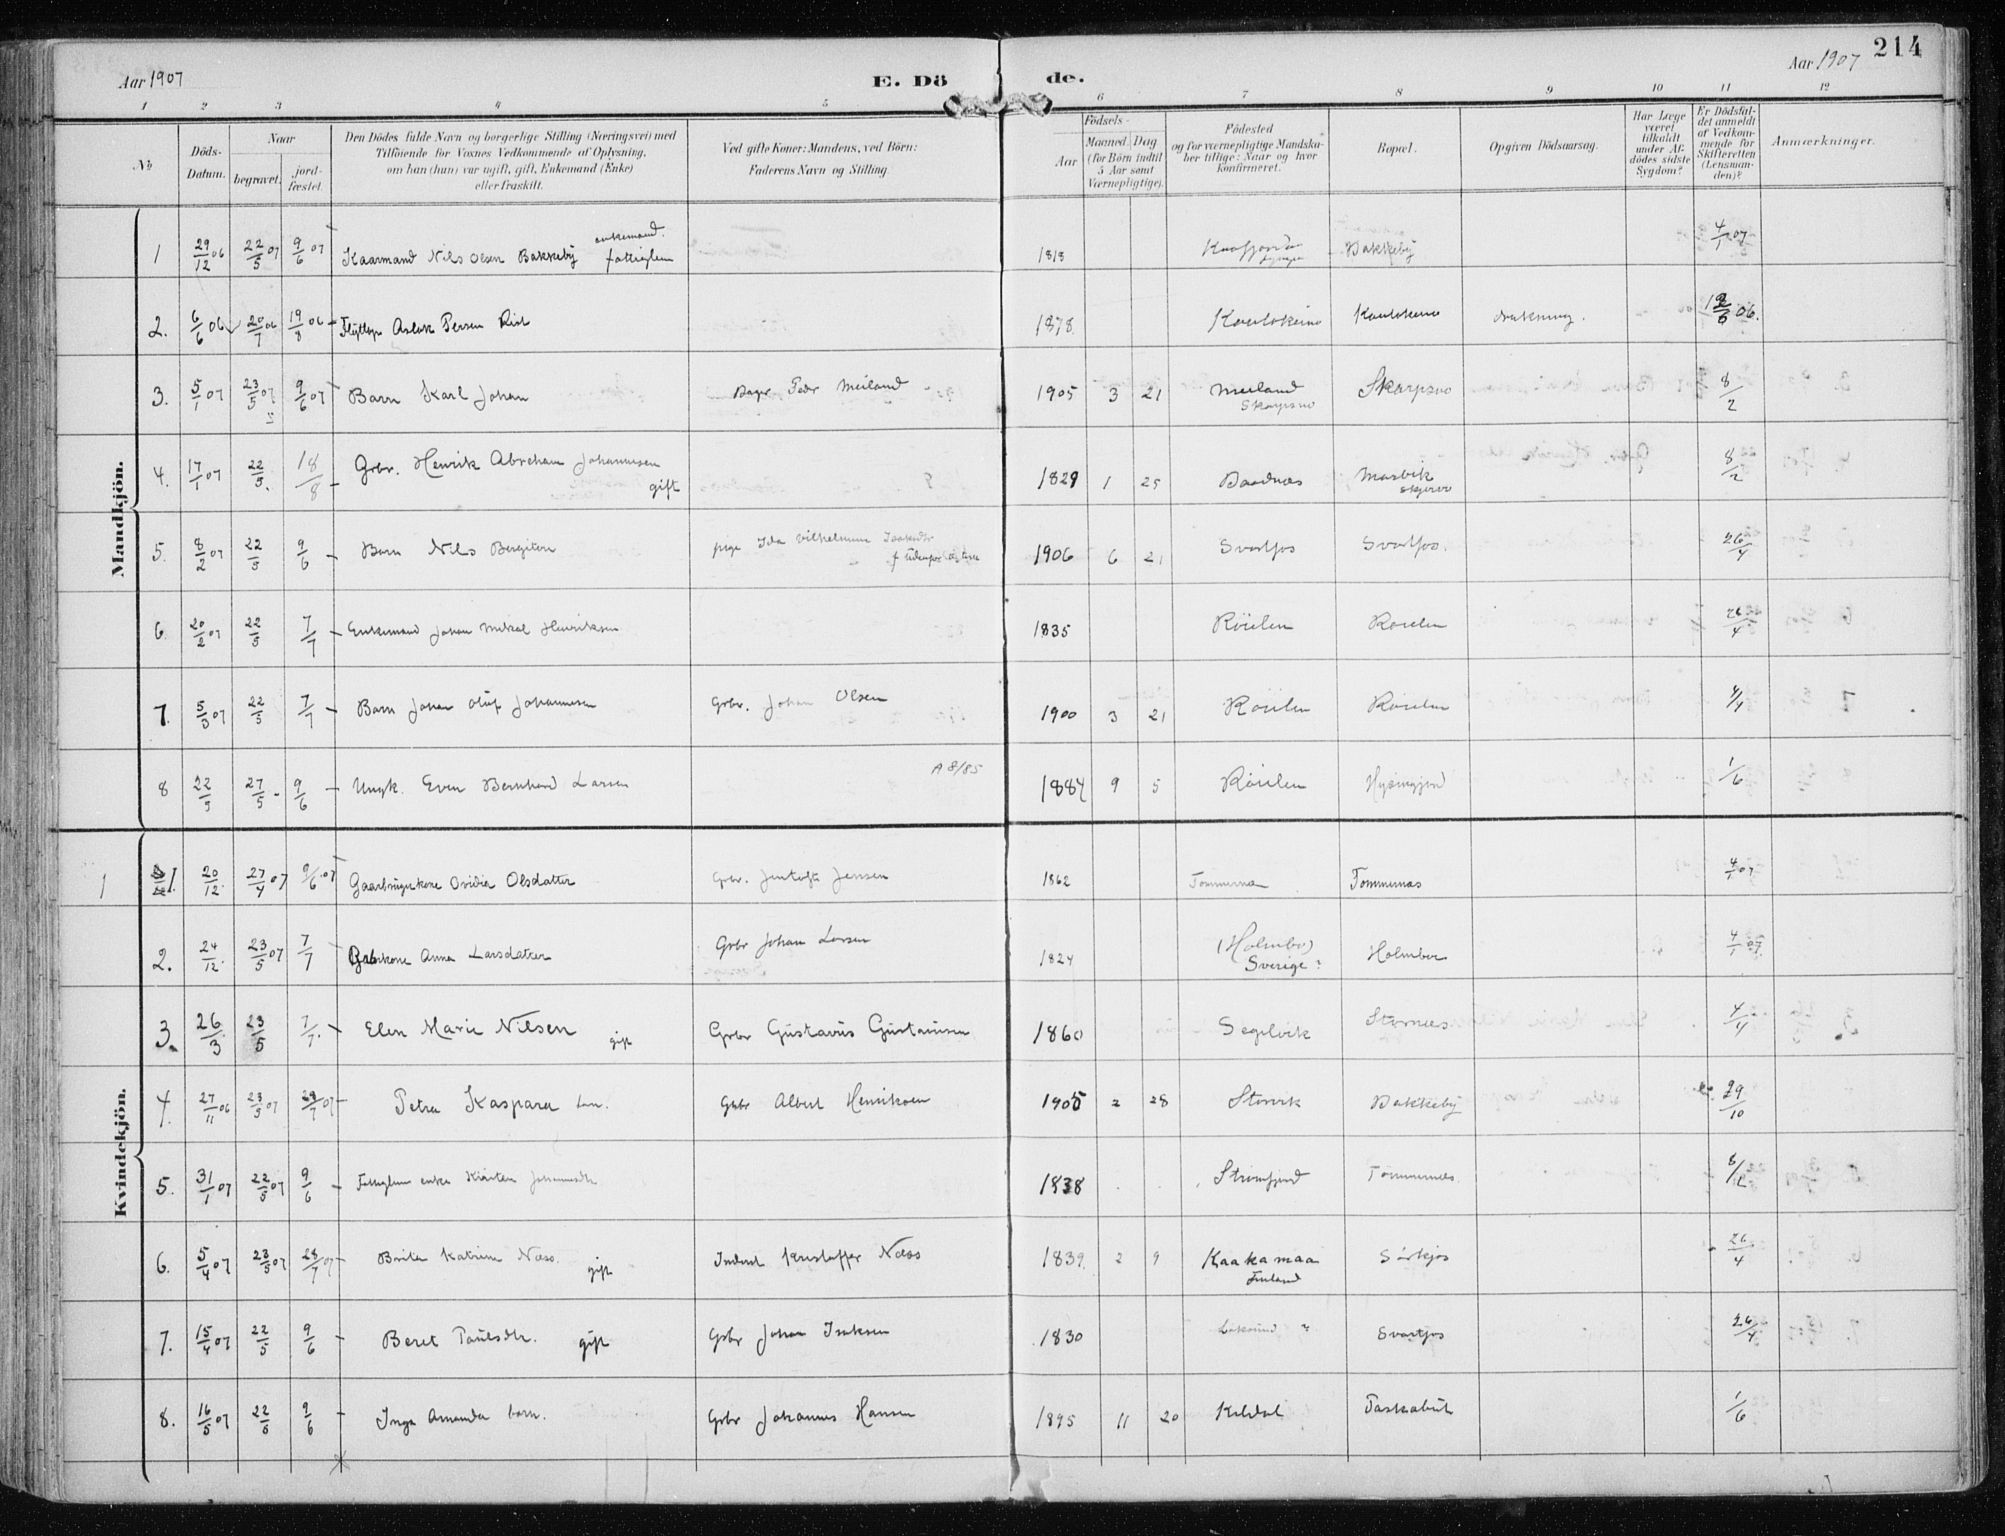 214
Aar 1907 E. Dö de. Aar 1907
1 2 3 4 5 6 7 8 9 10 11 12
No.
Döds-Datum.
Naar
begravet.
jord-fæstet.
Den Dödes fulde Navn og borgerlige Stilling (Næringsvei) med
Tilföiende for Voxnes Vedkommende af Oplysning,
om han (hun) var ugift, gift, Enkemand (Enke)
eller fraskilt.
Ved gifte Koner: Mandens, ved Börn:
Faderens Navn og Stilling.
Födsels-
Aar
Maaned. Dag
(for Börn indtil
5 Aar samt
Værnepligtige).
Födested
og for værnepligtige Mandska-
ber tillige: Naar og hvor
konfirmeret.
Bopæl.
Opgiven Dödsaarsag.
Har Læge
været
tilkaldt
under Af-
dödes sidste
Sygdom?
Er Dödsfal-
det anmeldt
af Vedkom-
mende for
Skifteretten
(Lensman-
den)?
Anmærkninger.
Mandkjön.
1 29/12 06 22/5 07 9/6 07 Kaarmand Nils Olsen Bakkeby enkemand. fattiglem 1818 Kaafjord Lyngen Bakkeby 4/1 07
2. 6/6 06 20/7 06 19/8 06 Aslak Persen Rist 1878. Kautokeino Kautokeino drukning. 06.
3. 5/1 07 23/5 07 9/6 07 Barn Karl Johan Peder Meiland 1905 3 21 Meiland Skorpsno Skarpsno 8/2
4. 17/1 07 22/5. 18/8 Grbr. Henrik Abraham Johannesen gift 1829 1 25 Baadnæs Masvik Skjervø 8/2
5. 8/2 07 22/5 9/6 Barn Nils pige Ida Vilhelmine Isaksdtr 1906 6 21 Svartfos Svartfos. 26/4
6. 20/2 07 22/5 7/7 Enkemand Johan Mikal Henriksen 1835 Röielen Roielen 26/4
7. 5/3 07 22/5 7/7 Barn Johan Oluf Johannesen Grbr. Johan Olsen 1900 3 21 Röielen Roielen 4/4
8 22/5 27/5 9/6 Ungk. Even Bernhard Larsen A 8/85 1884 9 5 Röielen 1/6
Kvindekjön.
1 1. 20/12. 27/4 07 9/6 07 Gaardbrugerkone Ovidia Olsdatter Grbr. Jensen 1862 Tommernæs Tommernæs 4/1 07
2. 24/12. 23/5 07 7/7 Anna Larsdatter Grbr Johan Larsen 1824 (Holmbo) Sverige? Holmboe 4/1 07.
3. 26/3 23/5 7/7. Elen Marie Nilsen gift Grbr Gustavus Gustavsen 1860 Segelvik Storneæs 4/4
4. 27/11 06 23/5 07 28/7 07 Petra Kaspara barn. Grbr Albert Henriksen 1905 2 28 Storvik Bakkeby 29/10
5. 31/1 07 22/5 07 9/6 Fattiglem enke Kirsten Johannesdtr 1838 Straumfjord Tommernæs. 8/2
6. 5/4 07 23/5 07 28/7 07 Brita Katrina Næss. gift Inderst Kristoffer Næss 1839. 2 9 Kaakamaa Finland Sörkjos 26/4
7. 15/4 07 22/5 9/6 Beret Paulsdtr. gift Grbr Johan Isaksen 1830 Svartfos 26/4
8. 16/5 07 22/5 9/6 Inga Amanda barn. Grbr Johannes Hansen 1895 11 20 Kildal Taskebut 1/6